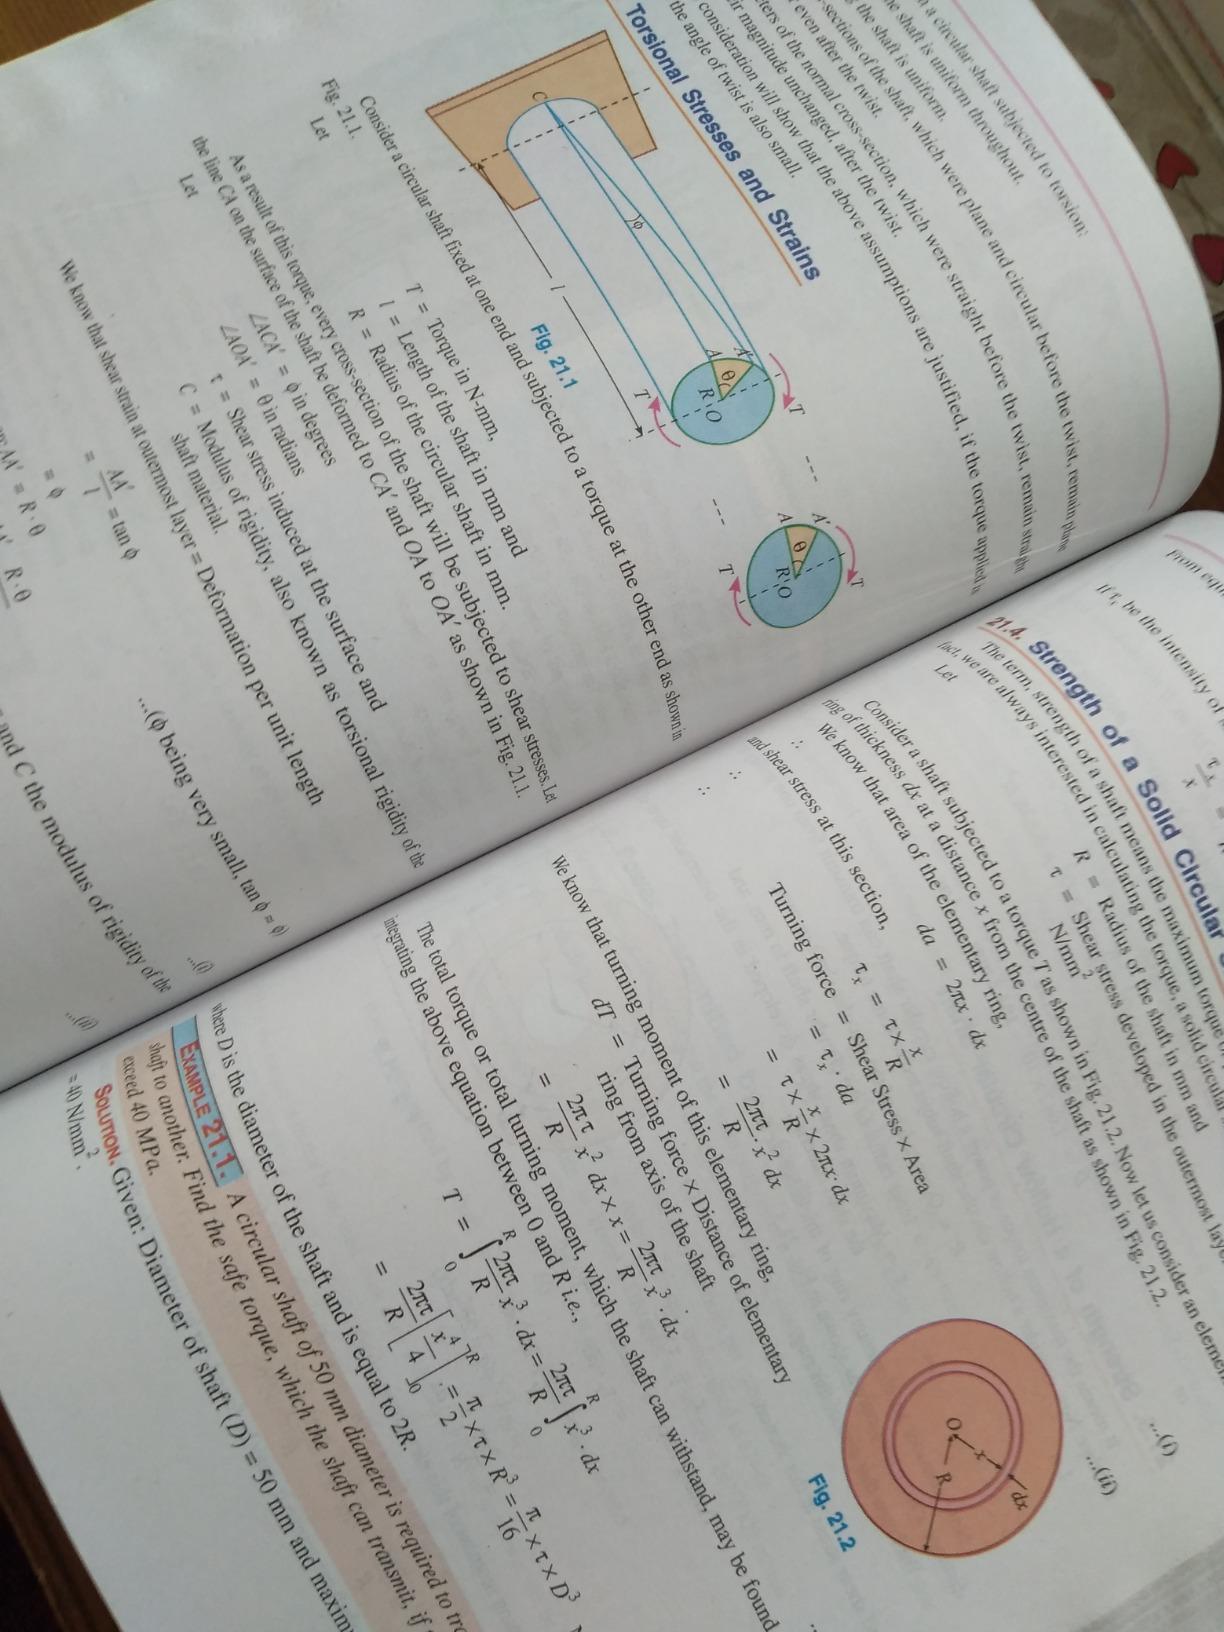 a circular shaft subjected to torsion:
he shaft is uniform throughout.
the shaft is uniform.
-sections of the shaft, which were plane and circular before the twist, remain plane
even after the twist.
eters of the normal cross-section, which were straight before the twist, remain straight
ir magnitude unchanged, after the twist.
consideration will show that the above assumptions are justified, if the torque applied is
the angle of twist is also small.
Torsional Stresses and Strains
C
ϕ
l
A
A'
θ
R
O
T
T
A
A'
θ
R
O
T
T
Fig. 21.1
Consider a circular shaft fixed at one end and subjected to a torque at the other end as shown in
Fig. 21.1.
Let
T = Torque in N-mm,
l = Length of the shaft in mm and
R = Radius of the circular shaft in mm.
As a result of this torque, every cross-section of the shaft will be subjected to shear stresses. Let
the line CA on the surface of the shaft be deformed to CA′ and OA to OA′ as shown in Fig. 21.1.
Let
∠ACA′ = ϕ in degrees
∠AOA′ = θ in radians
τ = Shear stress induced at the surface and
C = Modulus of rigidity, also known as torsional rigidity of the
shaft material.
We know that shear strain at outermost layer = Deformation per unit length
= AA′/l = tan ϕ
= ϕ
...(ϕ being very small, tan ϕ = ϕ)
AA′ = R · θ
...(i)
R · θ
...(ii)
and C the modulus of rigidity of the
From equ
If τx be the intensity of
τx/x
21.4. Strength of a Solid Circular
The term, strength of a shaft means the maximum torque
fact, we are always interested in calculating the torque, a solid circular
Let
R = Radius of the shaft in mm and
τ = Shear stress developed in the outermost layer
N/mm²
Consider a shaft subjected to a torque T as shown in Fig. 21.2. Now let us consider an element
ring of thickness dx at a distance x from the centre of the shaft as shown in Fig. 21.2.
We know that area of the elementary ring,
da = 2πx · dx
...(i)
and shear stress at this section,
τx = τ × x/R
...(ii)
∴ Turning force = Shear Stress × Area
= τx · da
= τ × x/R × 2πx · dx
= 2πτ/R · x² dx
O
x
dx
R
Fig. 21.2
We know that turning moment of this elementary ring,
dT = Turning force × Distance of elementary
ring from axis of the shaft
= 2πτ/R x² dx × x = 2πτ/R x³ · dx
The total torque or total turning moment, which the shaft can withstand, may be found
integrating the above equation between 0 and R i.e.,
T = ∫₀ᴿ 2πτ/R x³ · dx = 2πτ/R ∫₀ᴿ x³ · dx
= 2πτ/R [x⁴/4]₀ᴿ = π/2 × τ × R³ = π/16 × τ × D³
where D is the diameter of the shaft and is equal to 2R.
EXAMPLE 21.1. A circular shaft of 50 mm diameter is required to
shaft to another. Find the safe torque, which the shaft can transmit, if
exceed 40 MPa.
SOLUTION. Given: Diameter of shaft (D) = 50 mm and maxim
= 40 N/mm².